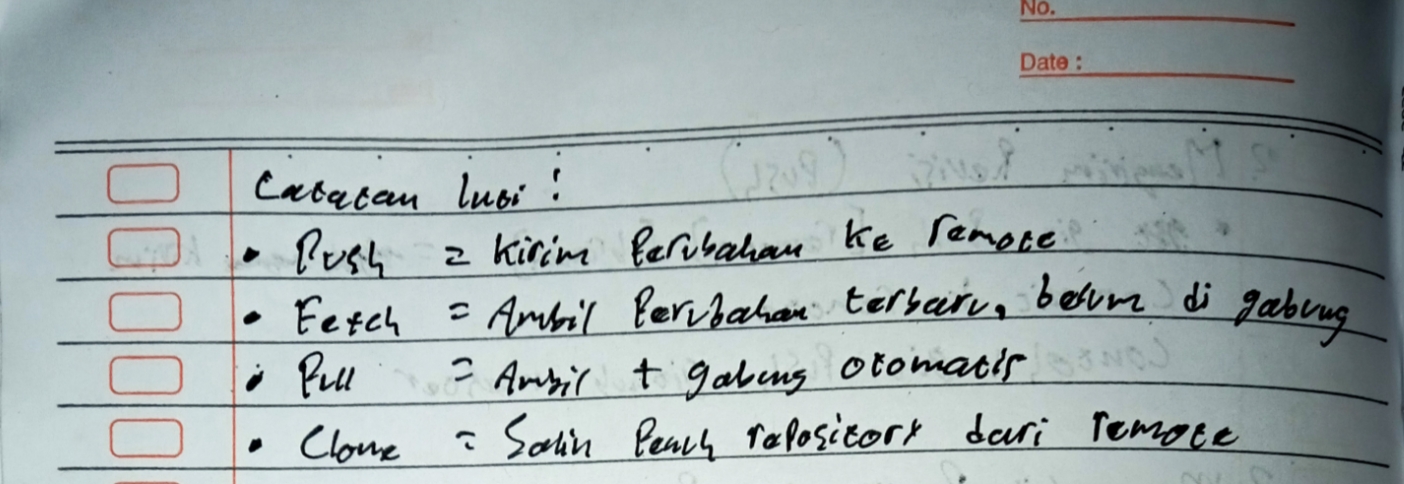 No.
Date :
Catatan lusi :
• Push = Kirim Perubahan ke remote
• Fetch = Ambil Perubahan terbaru, belum di gabung
• Pull = Ambil + gabung otomatis
• Clone = Salin Penuh repository dari remote